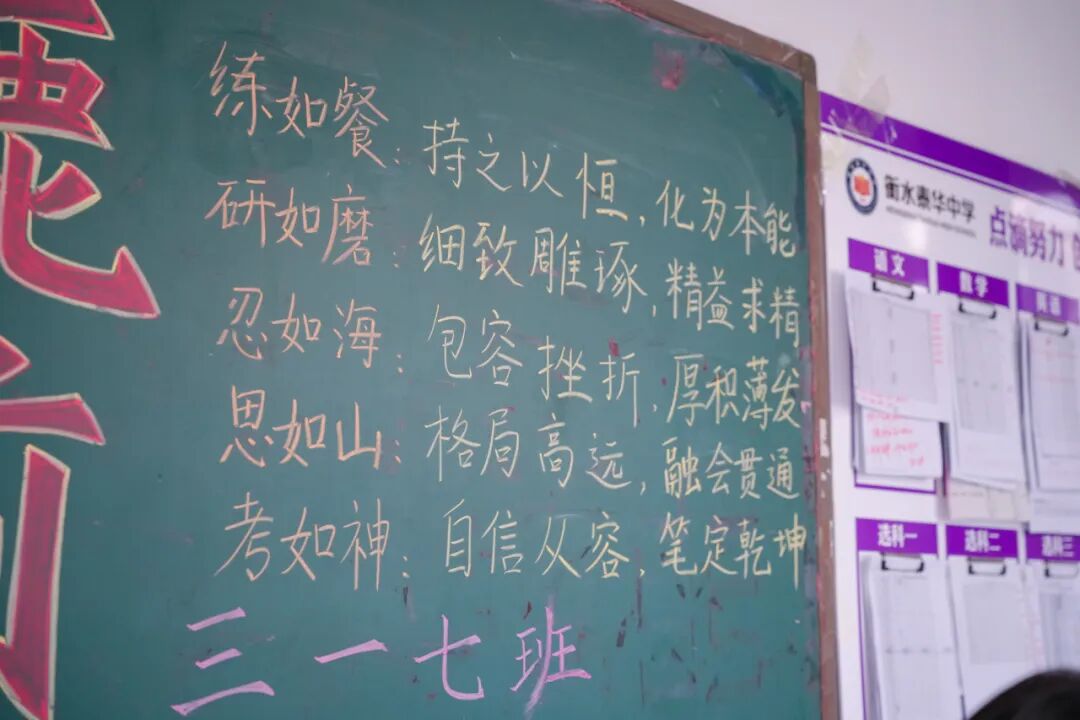 练如餐：持之以恒，化为本能
研如磨：细致雕琢，精益求精
忍如海：包容挫折，厚积薄发
思如山：格局高远，融会贯通
考如神：自信从容，笔定乾坤
三一七班
衡水泰华中学
点滴努力
语文
数学
英语
选科一
选科二
选科三